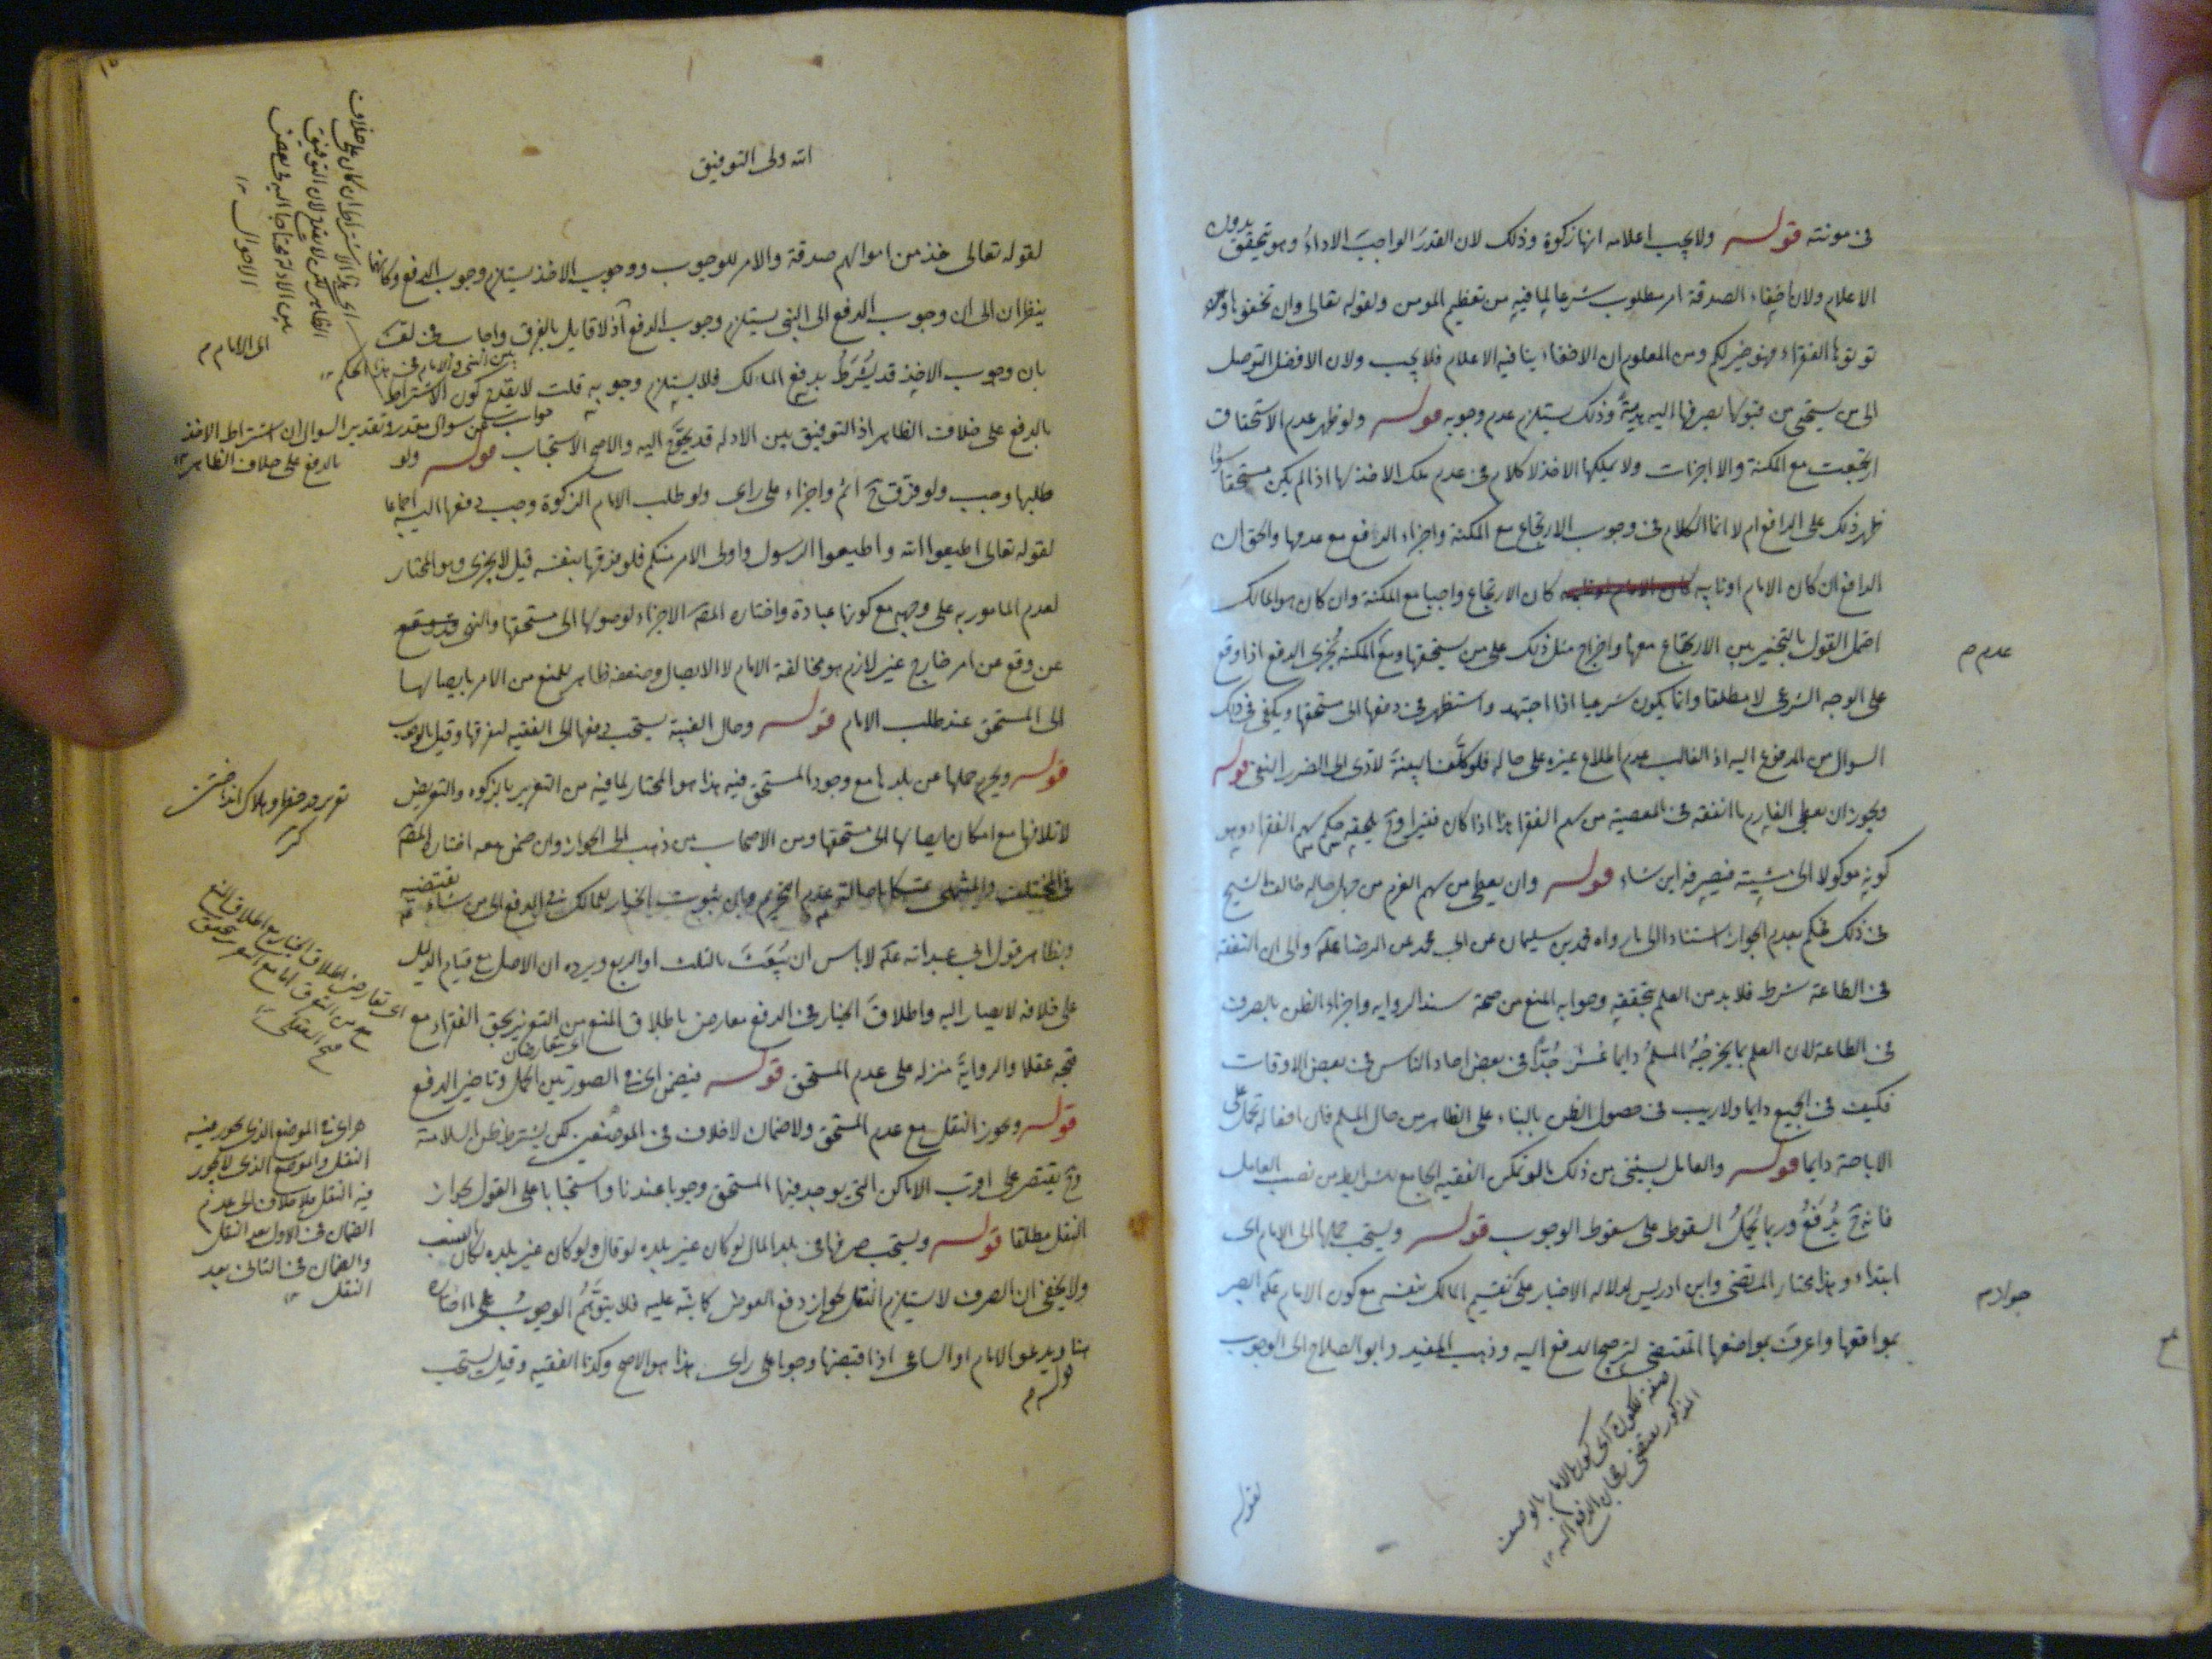 فى مونته قوله ولا يجب اعلامه انها زكوة وذلك لان القدر الواجب الاداء وهو يتحقق بدون
الاعلام ولان اخفاء الصدقة امر مطلوب شرعا لما فيه من تعظيم المومن ولقوله تعالى وان تخفوها و
توتوها الفقراء فهو خير لكم ومن المعلوم ان الاخفاء ينافيه الاعلام فلا يجب ولان الافضل التوصل
الى من يستحيى من قبولها بصرفها اليه هدية وذلك يستلزم عدم وجوبه قوله ولو ظهر عدم الاستحقاق
ارتجعت مع المكنة والا اجزات ولا يملكها الاخذ لا كلام فى عدم ملك الاخذ لها اذا لم يكن مستحقا سواء
ظهر ذلك على الدافع ام لا انما الكلام فى وجوب الارتجاع مع المكنة واجزاء الدافع مع عدمها والحق ان
الدافع ان كان الامام او نايبه كان الارتجاع واجبا مع المكنة وان كان هو المالك
احتمل القول بالتخيير بين الارتجاع معها واخراج مثل ذلك على من يستحقها ومع المكنة يجزى الدفع اذا وقع
عدم م
على الوجه الشرعى لا مطلقا وانما يكون شرعيا اذا اجتهد واستظهر فى دفعها الى مستحقها ويكفى فى ذلك
السوال من المدفوع اليه اذ الغالب عدم اطلاع غيره على حاله فلو كلفنا بينة لادى الى الضرر المنفى قوله
ويجوز ان يعطى الغارم ما انفقه فى المعصية من سهم الفقرا هذا اذا كان فقيرا وح يلحقه حكم سهم الفقراء وهو
كونه موكولا الى مشيته فيصرفه اين شاء قوله وان يعطى من سهم الغرم من جهل حاله خالف الشيخ
فى ذلك فحكم بعدم الجواز استنادا الى ما رواه محمد بن سليمان عن ابى محمد عن الرضا علم والى ان النفقة
فى الطاعة شرط فلا بد من العلم بتحققه وجوابه المنع من صحة سند الروايه واجزاء الظن بالصرف
فى الطاعة لان العلم بما يخرجه المسلم دايما عسر جدا فى بعض احاد الناس فى بعض الاوقات
فكيف فى الجميع دايما ولا ريب فى حصول الظن بالبناء على الظاهر من حال المسلم فان افعاله تحمل على
الاباحة دايما قوله والعامل يستثنى من ذلك ما لو تمكن الفقيه الجامع للشرايط من نصب العامل
فانه ح يدفع وربما يحمل السقوط على سقوط الوجوب قوله ويستحب حملها الى الامام اى
ابتداء وهذا مختار المرتضى وابن ادريس لدلاله الاخبار على تقسيم المالك بنفسه مع كون الامام علم ابصر
جواز م
بمواقعها واعرف بمواضعها المقتضى لترجيح الدفع اليه وذهب المفيد وابو الصلاح الى الوجوب
صفة للكون اى كون الامام بالوصف
المذكور يقتضى رجحان الدفع اليه ١٢
لقوله
الله ولى التوفيق
لقوله تعالى خذ من اموالهم صدقة والامر للوجوب ووجوب الاخذ يستلزم وجوب الدفع وكانهما
ينظران الى ان وجوب الدفع الى النبى يستلزم وجوب الدفع اذ لا قايل بالفرق واجاب فى لف
الى الامام م
بين النبى والامام فى هذا الحكم ١٢
بان وجوب الاخذ قد يشترط بدفع المالك فلا يستلزم وجوبه قلت لا يقدح كون الاشتراط
جواب عن سوال مقدر وتقدير السوال ان اشتراط الاخذ
بالدفع على خلاف الظاهر ١٢
بالدفع على خلاف الظاهر اذ التوفيق بين الادله قد يحوج اليه والاصح الاستحباب قوله ولو
طلبها وجب ولو فرق ح اثم واجزاء على راى ولو طلب الامام الزكوة وجب دفعها اليه اجماعا
لقوله تعالى اطيعوا الله واطيعوا الرسول واولى الامر منكم فلو فرقها بنفسه قيل لا يجزى وهو المختار
لعدم المامور به على وجهه مع كونها عبادة واختار المصه الاجزاء لوصولها الى مستحقها والنهى
عن وقع عن امر خارج غير لازم هو مخالفة الامام لا الايصال وضعفه ظاهر للمنع من الامر بايصالها
الى المستحق عند طلب الامام قوله وحال الغيبة يستحب دفعها الى الفقيه ليفرقها وقيل بالوجوب
قوله ويحرم حملها عن بلدها مع وجود المستحق فيه هذا هو المختار لما فيه من التغرير بالزكوه والتعريض
لاتلافها مع امكان ايصالها الى مستحقها ومن الاصحاب من ذهب الى الجواز وان ضمن معه اختاره المصه
فى المختلف والمنتهى متمسكا باصالة عدم التحريم وبان ثبوت الخيار للمالك فى الدفع الى من شاء يقتضيه
وبظاهر قول ابى عبد الله علم لا باس ان يبعث بالثلث او الربع ويرده ان الاصل مع قيام الدليل
على خلافه لا يصار اليه واطلاق الخيار فى الدفع معارض باطلاق المنع من التغرير بحق الفقراء مع
اى يتعارضان
قبحه عقلا والرواية منزله على عدم المستحق قوله فيضمن اى فى الصورتين الحمل وتاخير الدفع
قوله ويجوز النقل مع عدم المستحق ولا ضمان لا خلاف فى الموضعين لكن يشترط ظن السلامة
وح يقتصر على اقرب الاماكن التى يوجد فيها المستحق وجوبا عندنا واستحبابا على القول بجواز
النقل مطلقا قوله ويستحب صرفها فى بلد المال لو كان غير بلده لو قال ولو كان غير بلده لكان انسب
ولا يخفى ان الصرف لا يستلزم النقل لجواز دفع العوض كما نبه عليه فلا يتوهم الوجوب على ما اختاره
هنا ويدعو الامام او الساعى اذا قبضها وجوبا على راى هذا هو الاصح وكذا الفقيه وقيل يستحب
قوله م
اى هذا الاشتراط ان كان على خلاف
الظاهر لكن لا يقدح لان التوفيق
بين الادلة محتاجا اليه فى بعض
الاحوال ١٢
تغرير در خطر و هلاك انداختن
اى تعارض اطلاق الخيار مع اطلاق المنع
هو اى فى الموضع الذى يجوز فيه
النقل والموضع الذى لا يجوز
فيه النقل فلا خلاف فى عدم
الضمان فى الاول بعد النقل
والضمان فى الثانى بعد
النقل ١٢